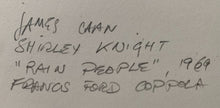 JAMES CAAN
SHIRLEY KNIGHT
"RAIN PEOPLE", 1969
FRANCIS FORD COPPOLA